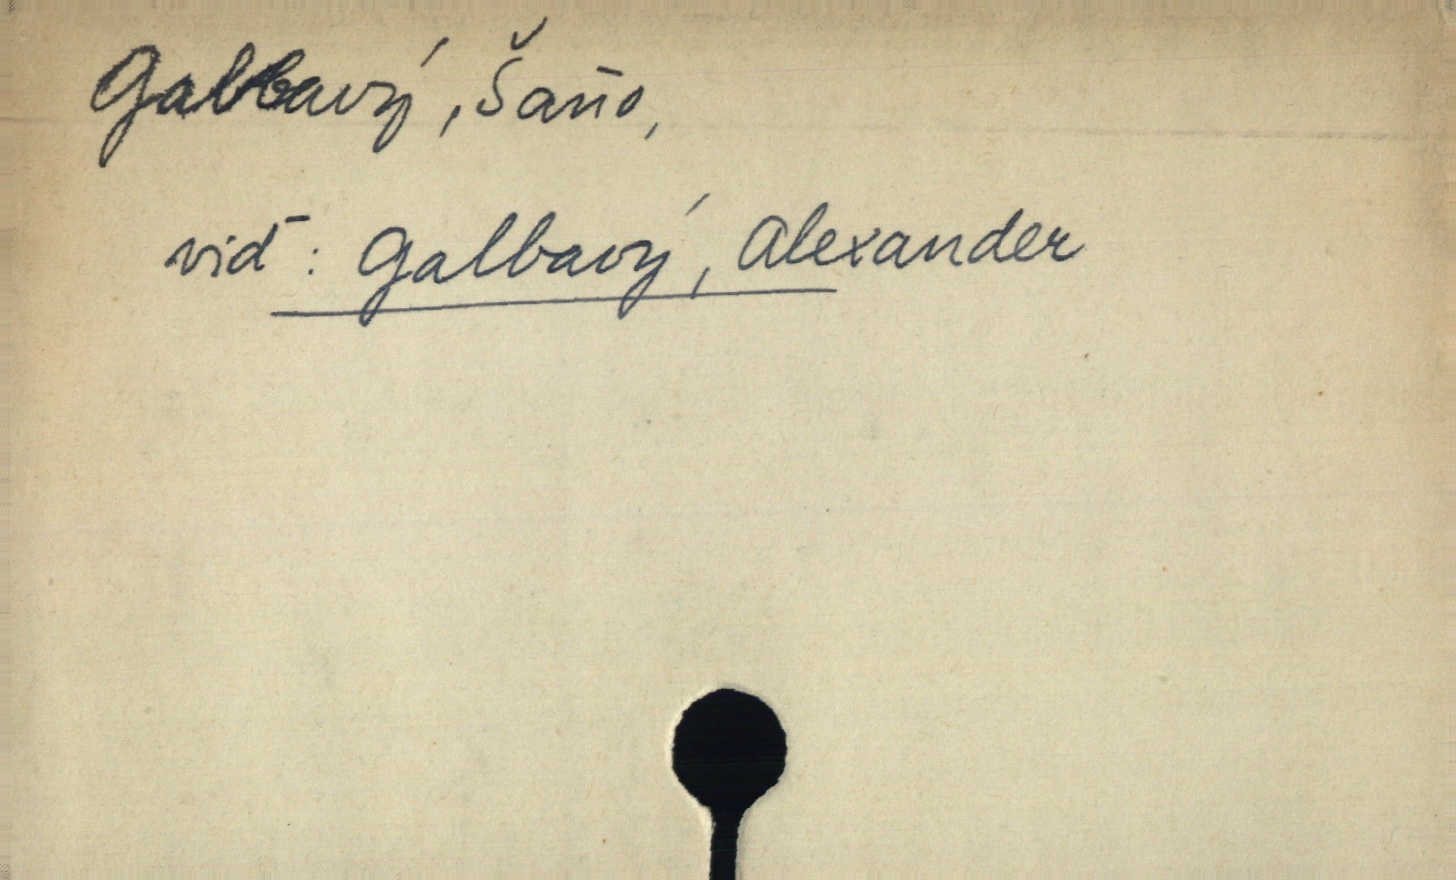 Galbavý, Šaňo,
viď: Galbavý, Alexander